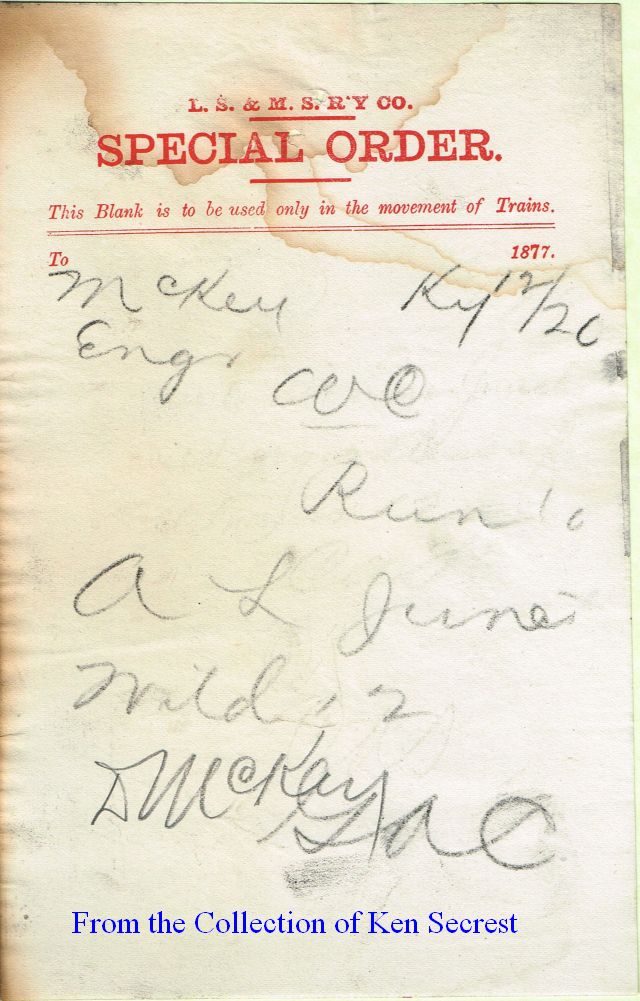 L. S. & M. S. R'Y CO.
SPECIAL ORDER.
This Blank is to be used only in the movement of Trains.
To 1877.
McKey Ky 12/20
Engr
Run to
A L June
Wild 12
D McKay
From the Collection of Ken Secrest